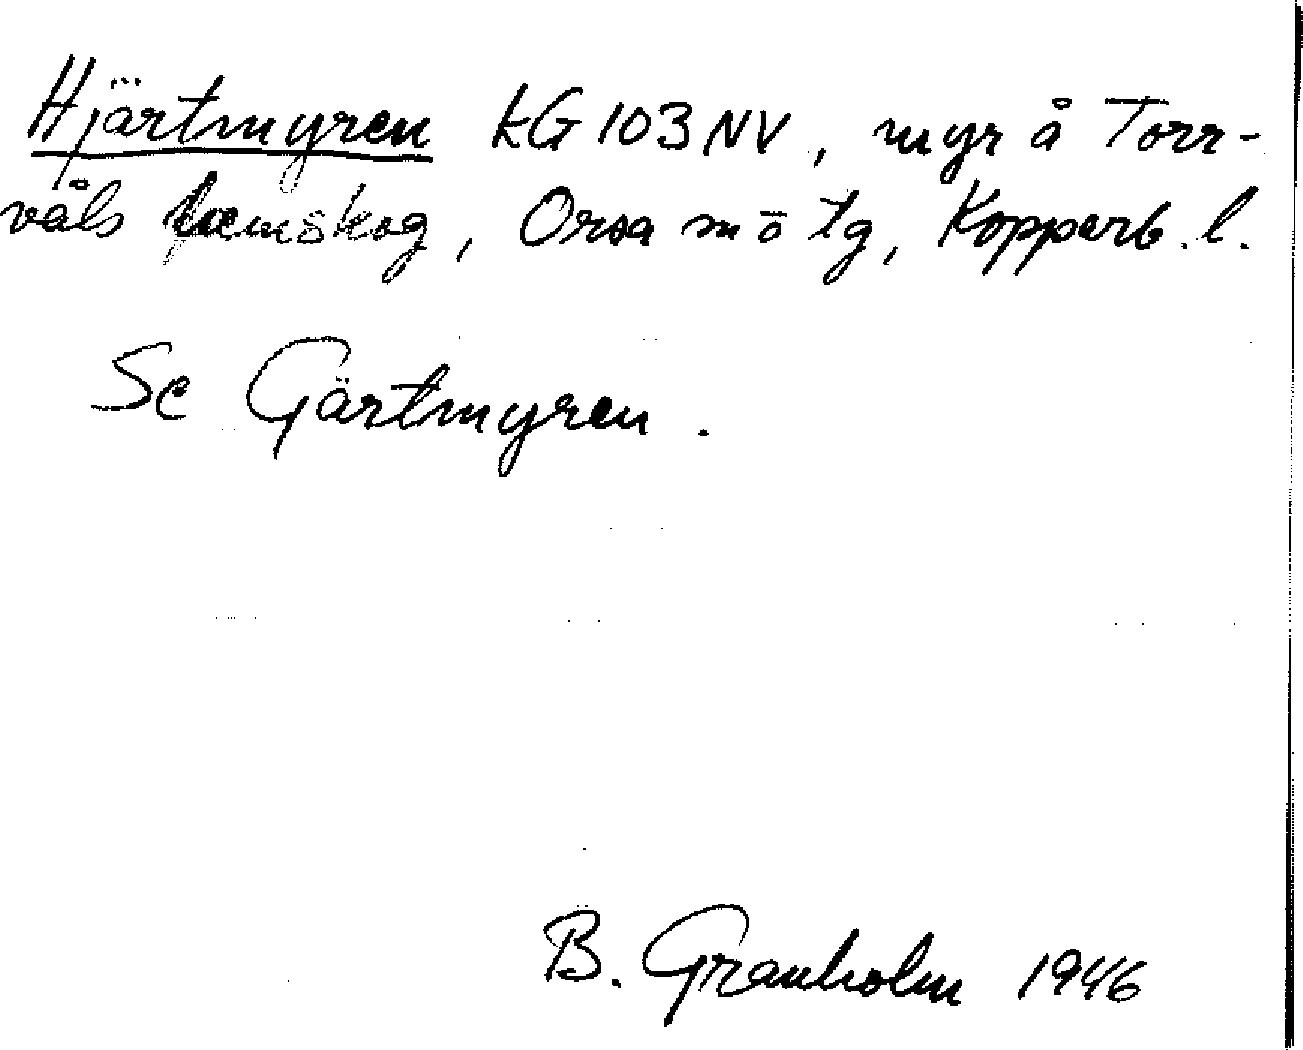 Hjärtmyren kG 103 NV, myr å Torr-
våls hemskog, Orsa sn o tg, Kopparb. l.
Se Gärtmyren.
B. Granholm 1946